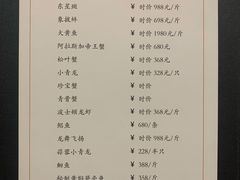 东星斑 ¥ 时价 988元/斤
象拔蚌 ¥ 时价 698元/斤
大黄鱼 ¥ 时价 1980元/斤
阿拉斯加帝王蟹 ¥ 时价 680元
松叶蟹 ¥ 时价 368元
小青龙 ¥ 时价 328元/只
珍宝蟹 ¥ 时价
青膏蟹 ¥ 时价
波士顿龙虾 ¥ 时价 368元/斤
鲳鱼 ¥ 680/条
龙舞飞扬 ¥ 时价 988元/斤
蒜蓉小青龙 ¥ 228/半只
鮰鱼 ¥ 388/斤
¥ 358/斤